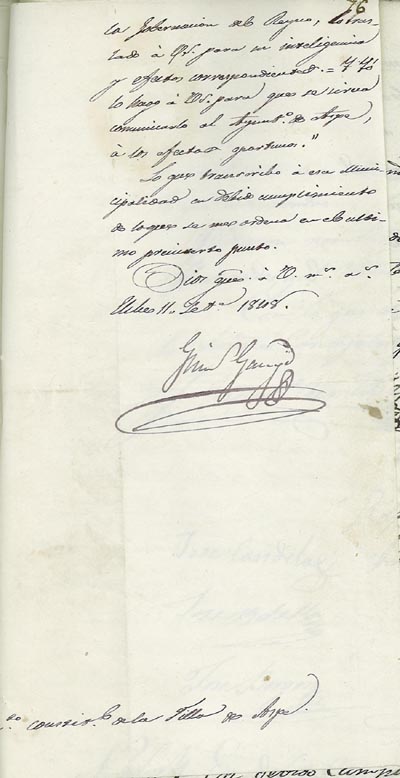 76
la Gobernacion del Reyno, lo tras-
lado à V.S. para su inteligencia
y efectos correspondientes = Y yo
lo hago à V. para que se sirva
comunicarlo al Ayunt.º de Aspe,
à los efectos oportunos."
Lo que transcribo à esa Muni-
cipalidad en debido cumplimiento
de lo que se me ordena en el ulti-
mo preinserto punto.
Dios gue. à V. m.s a.s
Elche 11. Set.e 1848.
Constit.l de la Villa de Aspe.